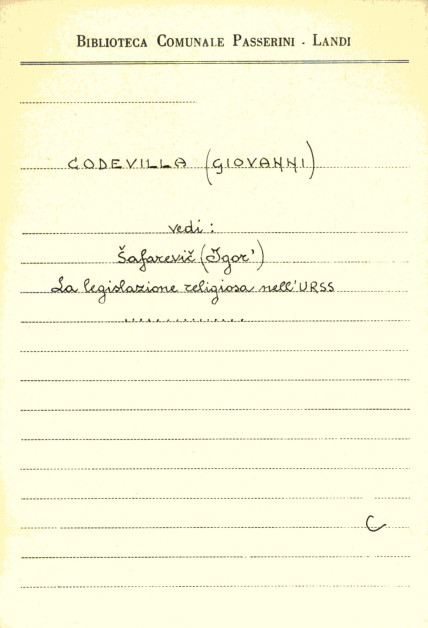 BIBLIOTECA COMUNALE PASSERINI - LANDI
CODEVILLA (GIOVANNI)
vedi:
Šafarevič (Igor')
La legislazione religiosa nell'URSS
................
C